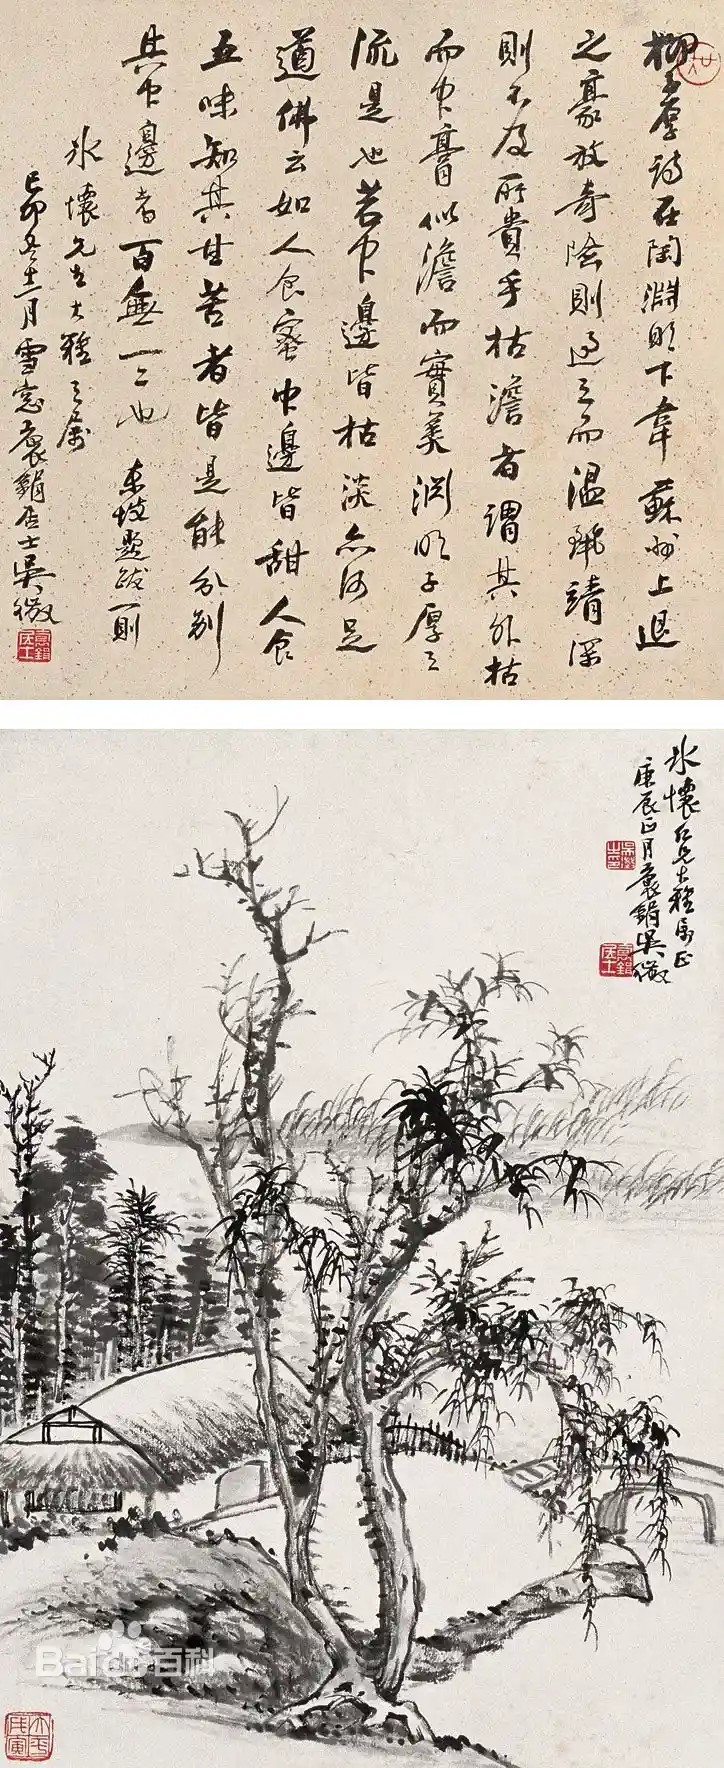 柳子厚詩在陶淵明下韋蘇州上退
之豪放奇險則過之而温麗靖深
則不及所貴乎枯澹者謂其外枯
而中膏似澹而實美淵明子厚之
流是也若中邊皆枯淡亦何足
道佛云如人食蜜中邊皆甜人食
五味知其甘苦者皆是能分別
其中邊者百無一二也 東坡題跋一則
冰懷先生大雅之屬
己卯冬十二月雪窗袌鋗居士吳徵
袌鋗居士
冰懷仁兄大雅屬正
庚辰正月袌鋗吳徵
袌鋗居士
Baidu百科